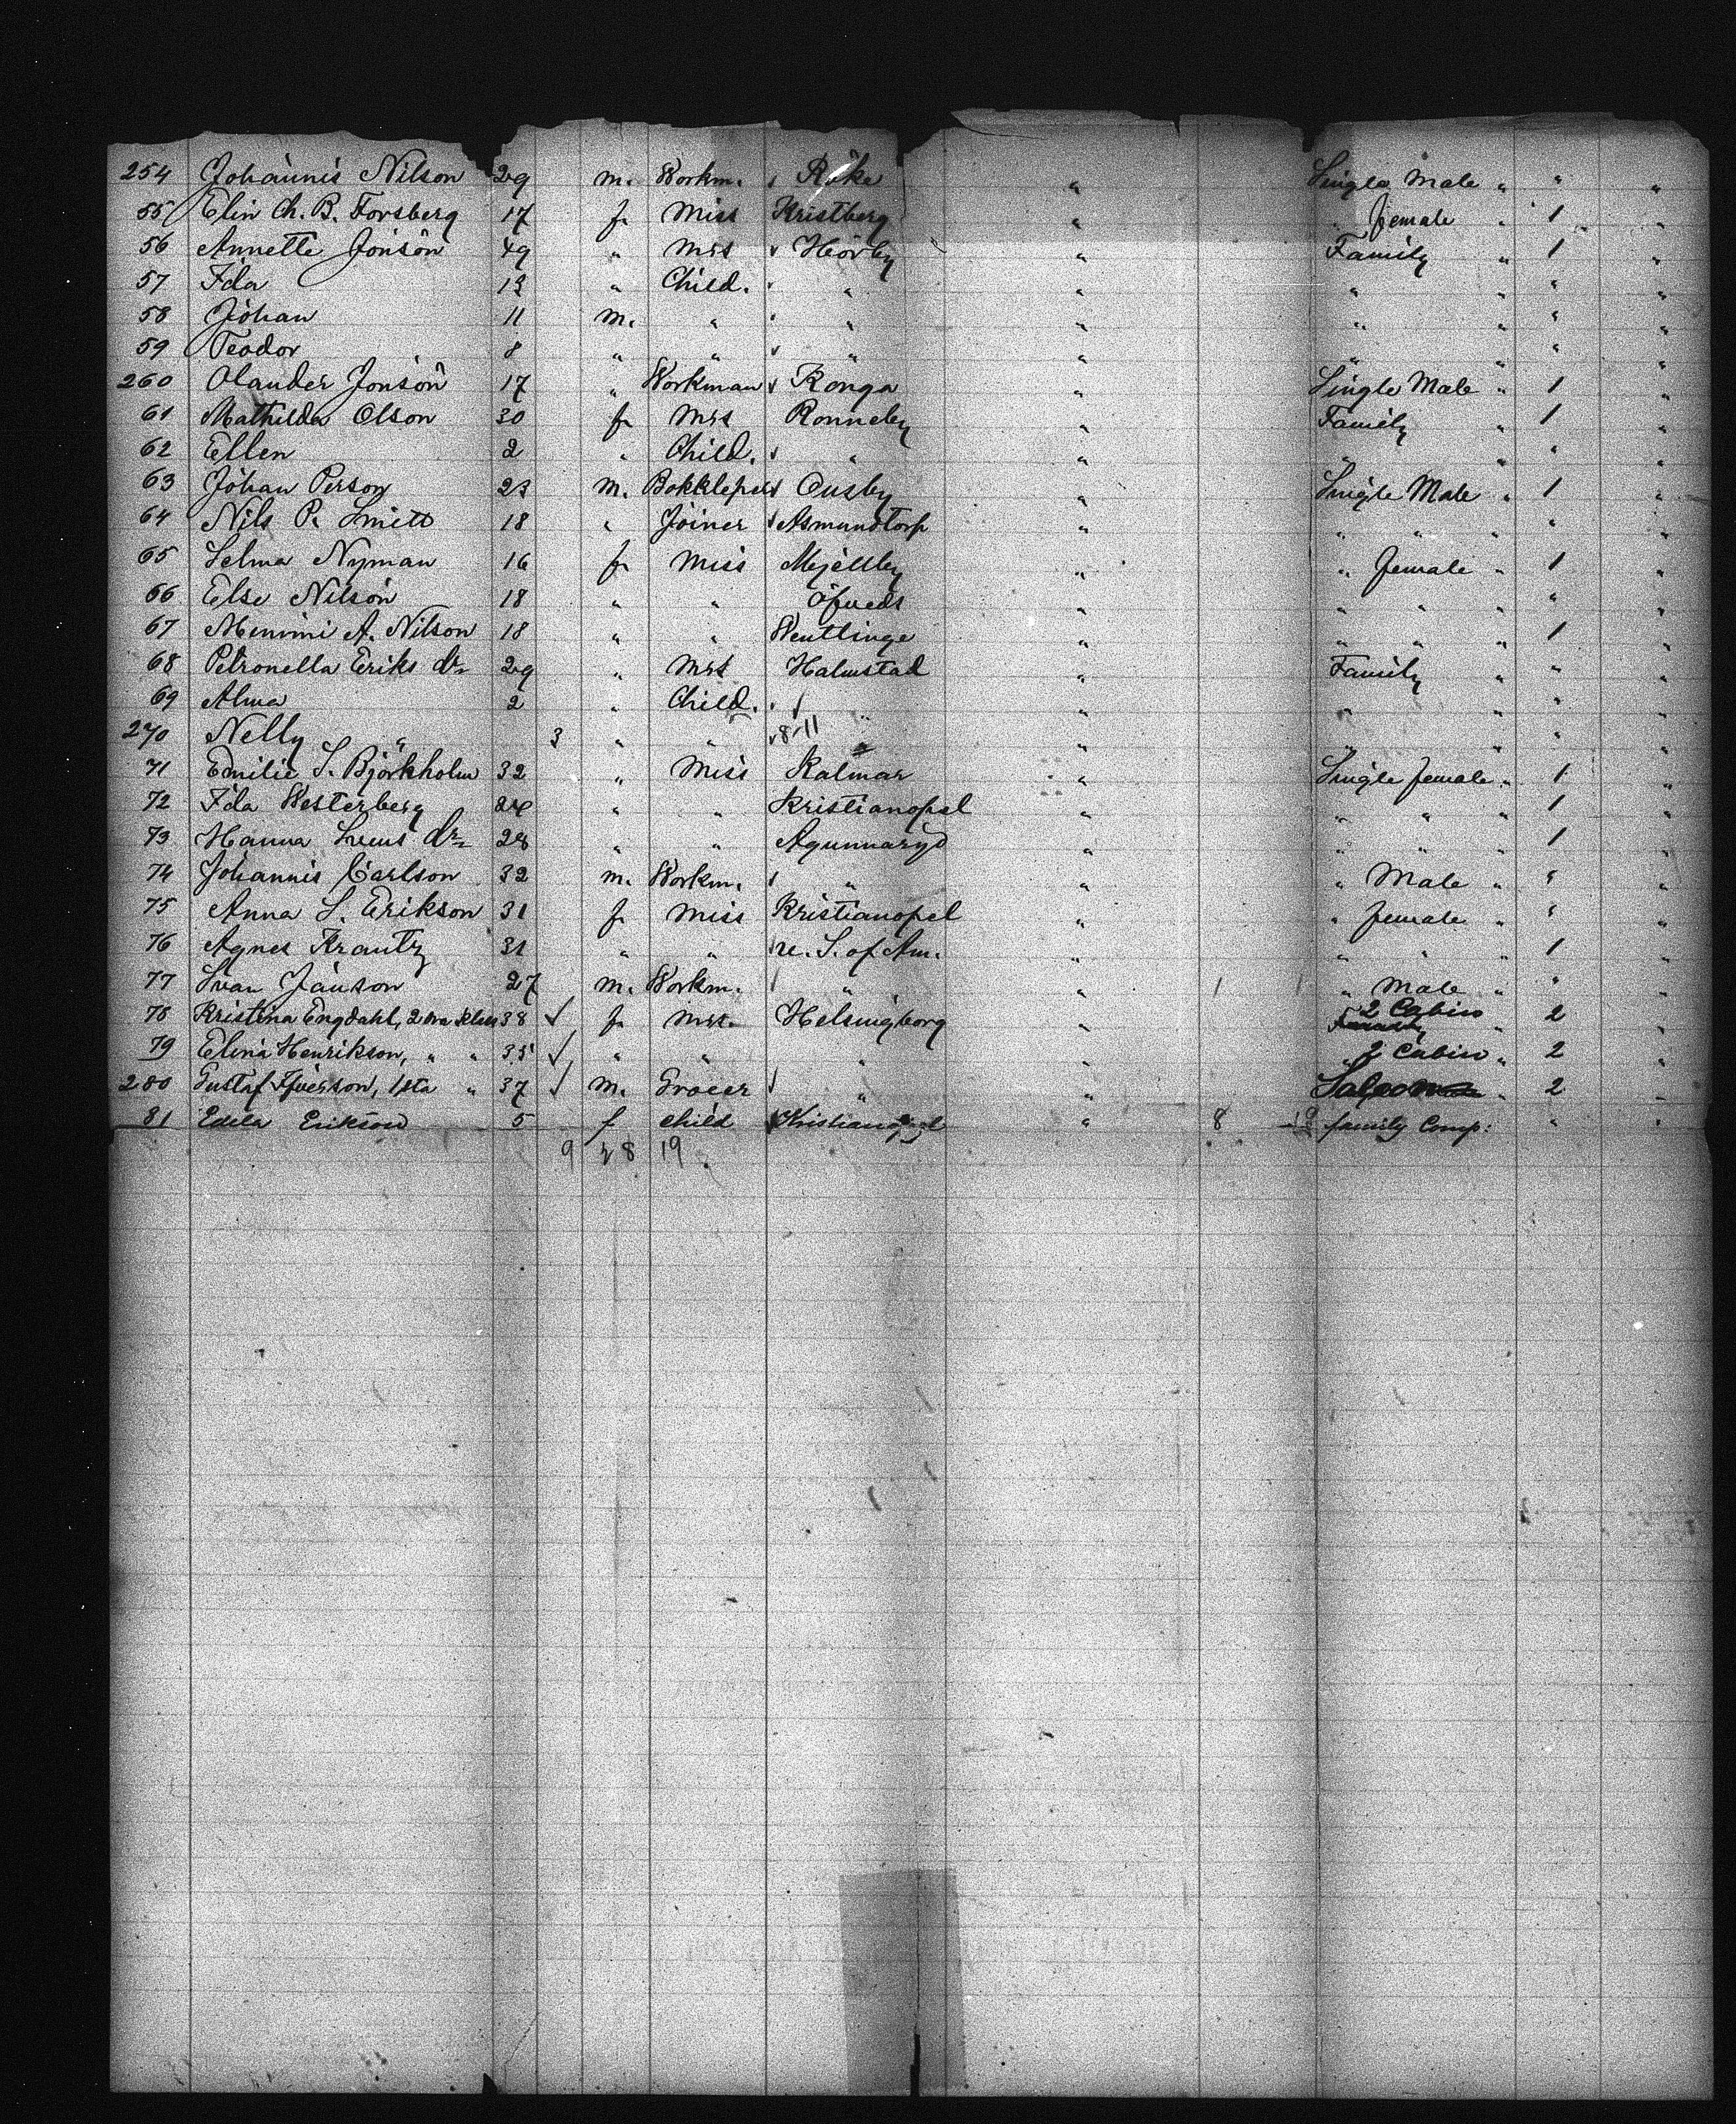 254 Johannis Nilson 29 m. Workm. Röke " Single Male " " "
55 Elin Ch. B. Forsberg 17 f. Miss Kristberg " " female " 1 "
56 Annette Jonson 49 " Mrs Hörby " Family " 1 "
57 Ida 13 " Child. " " " " " "
58 Johan 11 m. " " " " " " "
59 Teodor 8 " " " " " " " "
260 Olander Jonson 17 " Workman Konga " Single Male " 1 "
61 Mathilda Olson 30 f. Mrs Ronneby " Family " 1 "
62 Ellen 2 " Child. " " " " " "
63 Johan Person 23 m. Bokkleper Ousby " Single Male " 1 "
64 Nils P. Smitt 18 " Joiner Asmundtorp " " " " " "
65 Selma Nyman 16 f. Miss Mjellby " " female " 1 "
66 Else Nilson 18 " " Öfveds " " " " " "
67 A. Nilson 18 " " Wentlinge " " " " 1 "
68 Petronella Eriks dr 29 " Mrs Halmstad " Family " " "
69 Alma 2 " Child. " " " " " "
270 Nelly " 3 " " 8-11 " " " " "
71 Emilie S. Björkholm 32 " Miss Kalmar " Single female " 1 "
72 Ida Westerberg 24 " " Kristianopel " " " " 1 "
73 Hanna Svens dr 28 " " Agunnaryd " " " " 1 "
74 Johannis Carlson 32 m. Workm. " " " Male " " "
75 Anna S. Erikson 31 f. Miss Kristianopel " " female " " "
76 Agnes Krantz 31 " " S. of Am. " " " " 1 "
77 Svan Janson 27 m. Workm. " " 1 1 " Male " " "
78 Kristina Engdahl, 2dra Klass 38 f. Mrs. Helsingborg " 2 Cabin " 2 "
79 Elina Henrikson, " " 35 " " " " " 2 Cabin " 2 "
280 Gustaf 1sta " 37 m. Grocer " " Saloon " 2 "
81 Edela Erikson 5 f child Kristianopel " 8 family Comp: " "
9 28 19